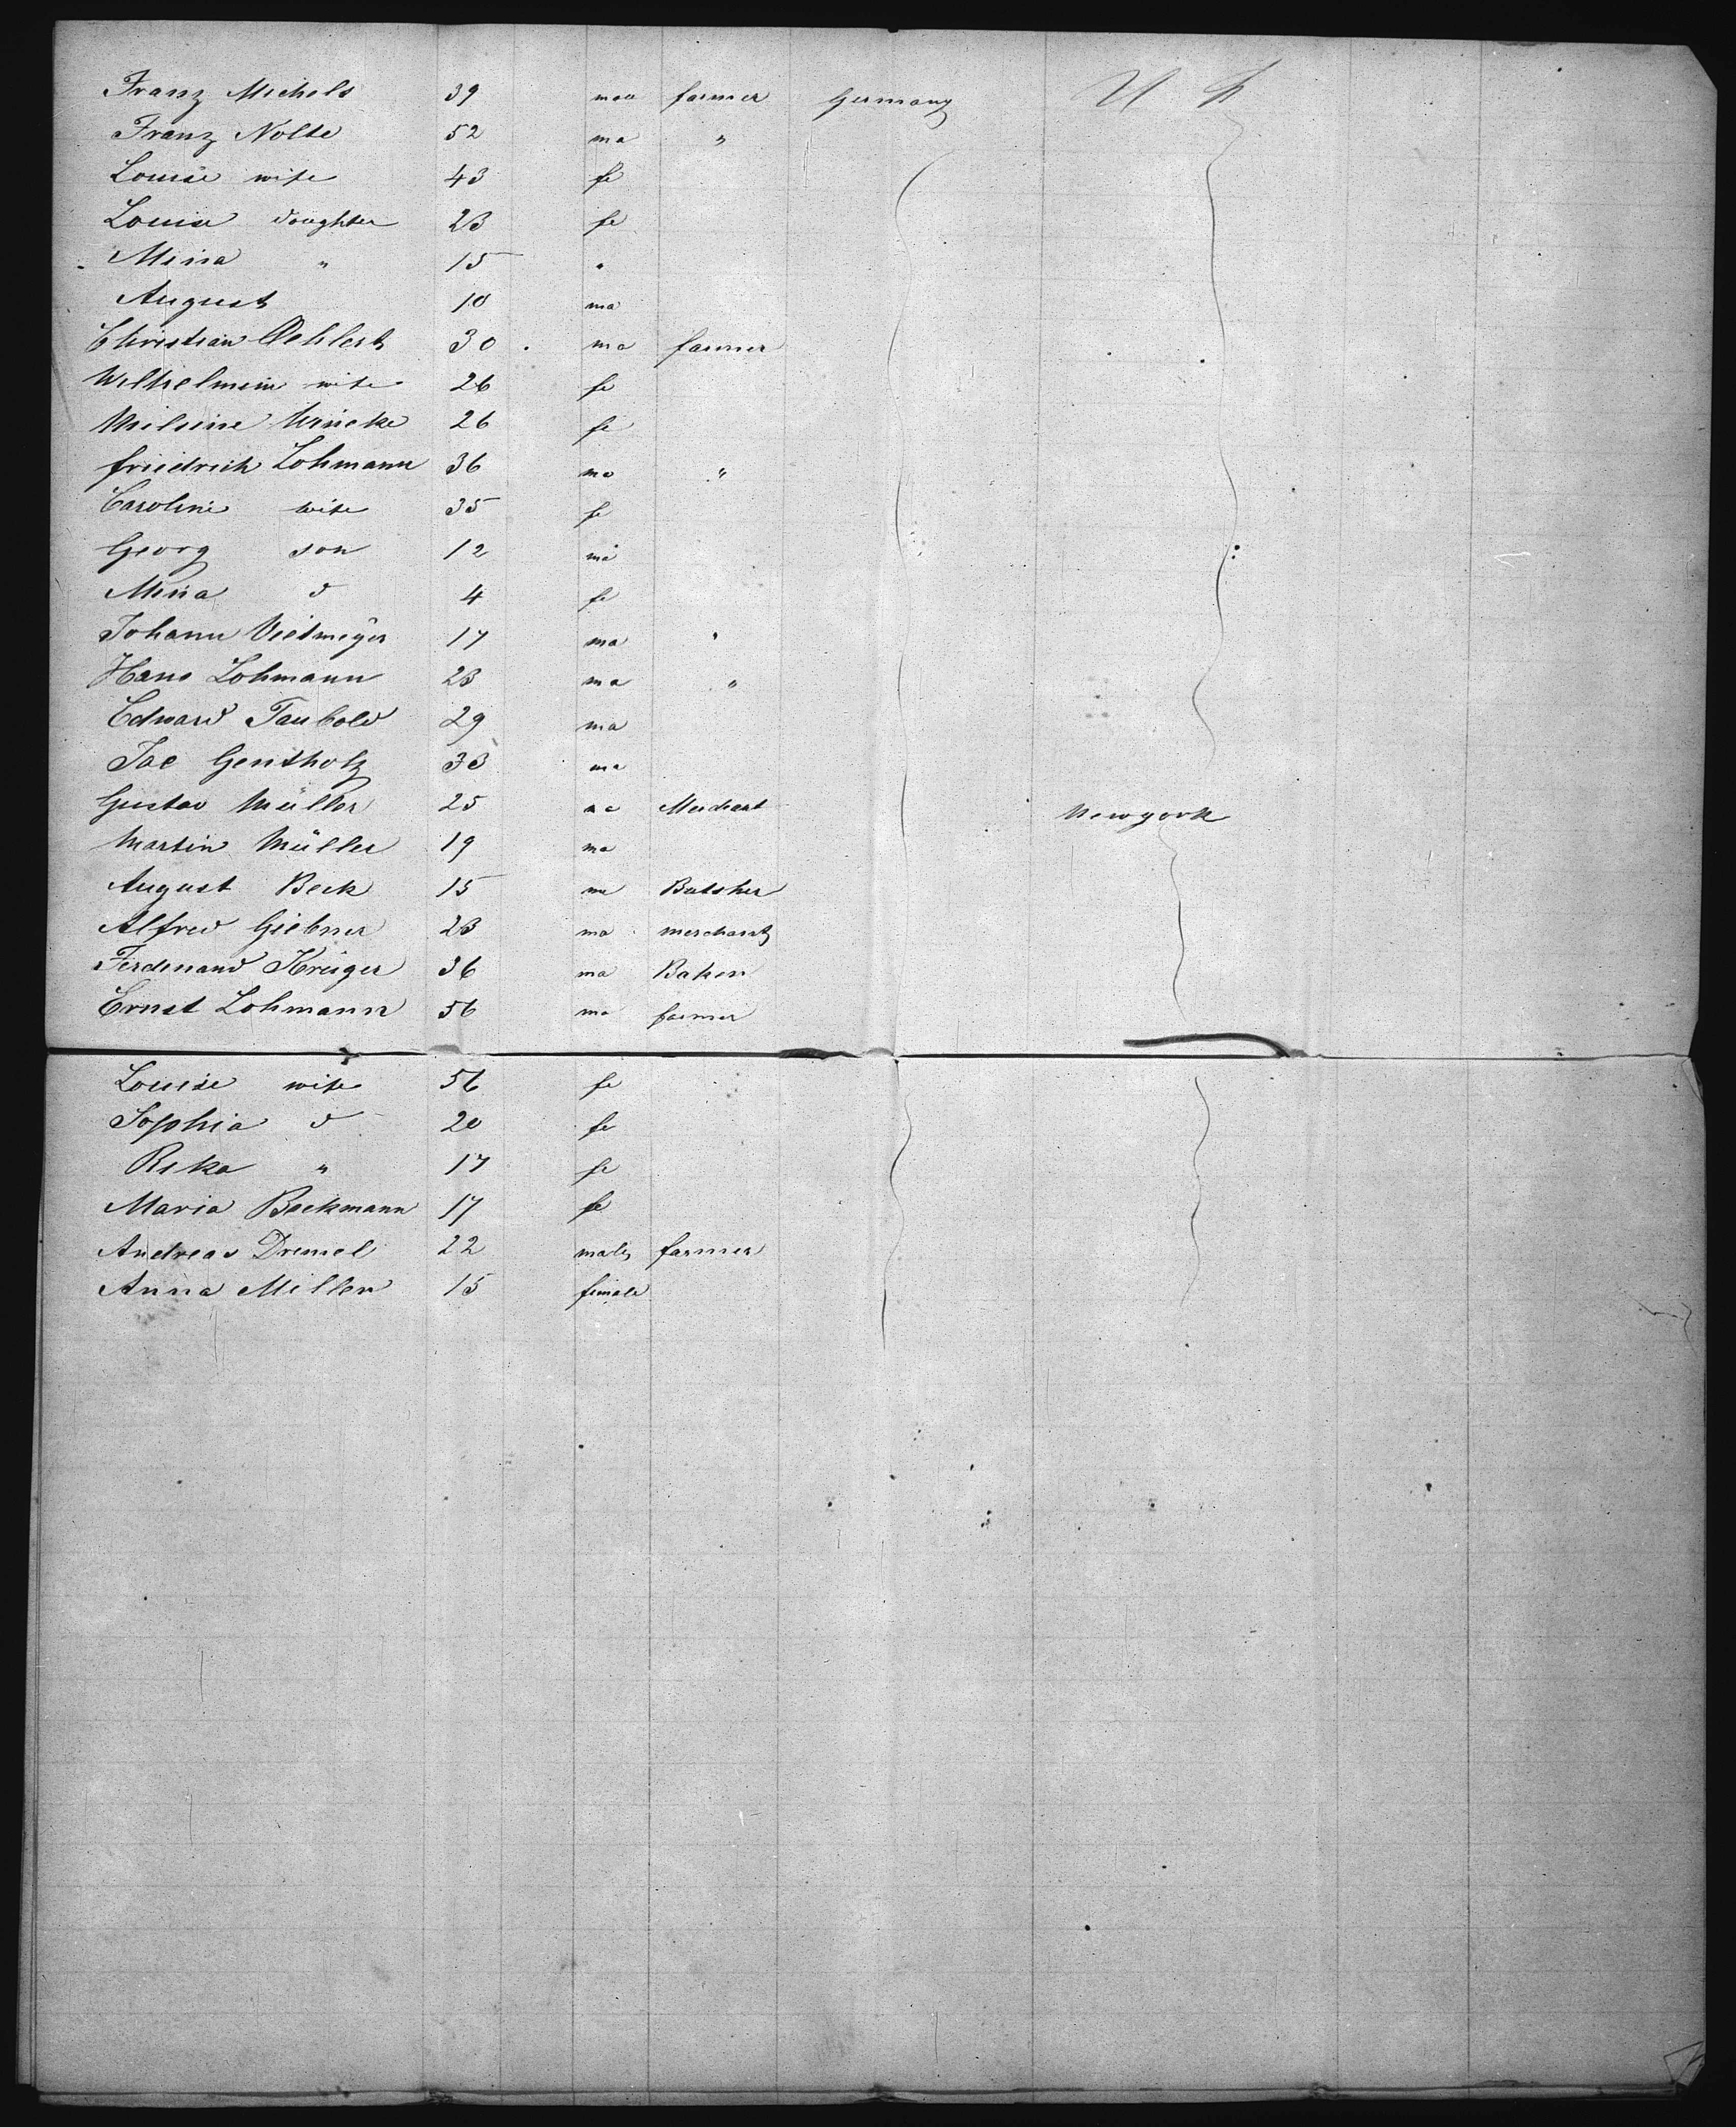 Franz Michels 39 ma farmer Germany
Franz Nolte 52 ma "
Louise wife 43 fe
Louise daughter 23 fe
Mina " 15 "
August 10 ma
Christian Oehlert 30 ma farmer
Wilhelmine wife 26 fe
26 fe
friedrich Lohmann 36 ma "
Caroline wife 35 fe
Georg son 12 ma
Mina d 4 fe
Johann Vietmeyer 17 ma "
Hans Lohmann 23 ma "
Edward Taubold 29 ma
Jac Gentholz 33 ma
Gustav Müller 25 ma Merchant Newyork
Martin Müller 19 ma
August Beck 15 ma Butsher
Alfred Giebner 23 ma merchant
Ferdenand Krüger 36 ma Baker
Ernst Lohmann 56 ma farmer
Louise wife 56 fe
Sophia d 20 fe
Rika " 17 fe
Maria Beckmann 17 fe
Andreas Dremel 22 male farmer
Anna Miller 15 female